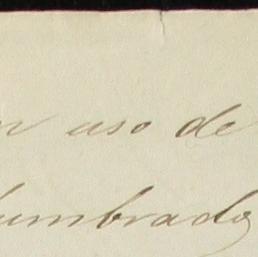 en uso de
lumbrado